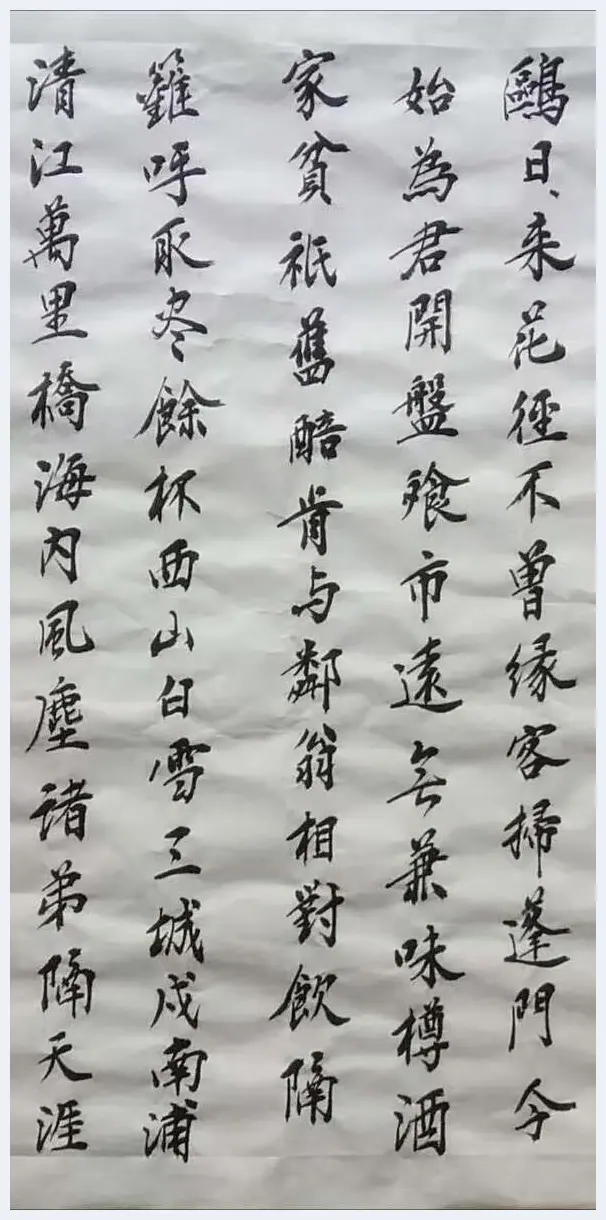 鷗日、来花徑不曾緣客掃蓬門今
始為君開盤飱市遠無兼味樽酒
家貧衹舊醅肯与鄰翁相對飲隔
籬呼取尽餘杯西山白雪三城戍南浦
清江萬里橋海内風塵諸弟隔天涯